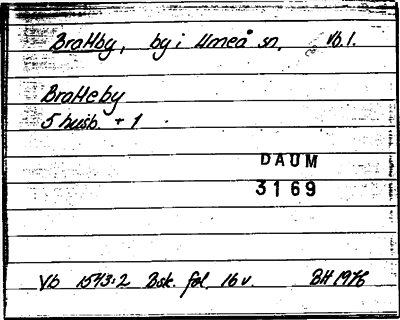 Brattby, by i Umeå sn. Vb.l.
Bratteby
5 husb. + 1
DAUM
3169
Vb 1543:2 Bsk. fol. 16 v. BH 1976